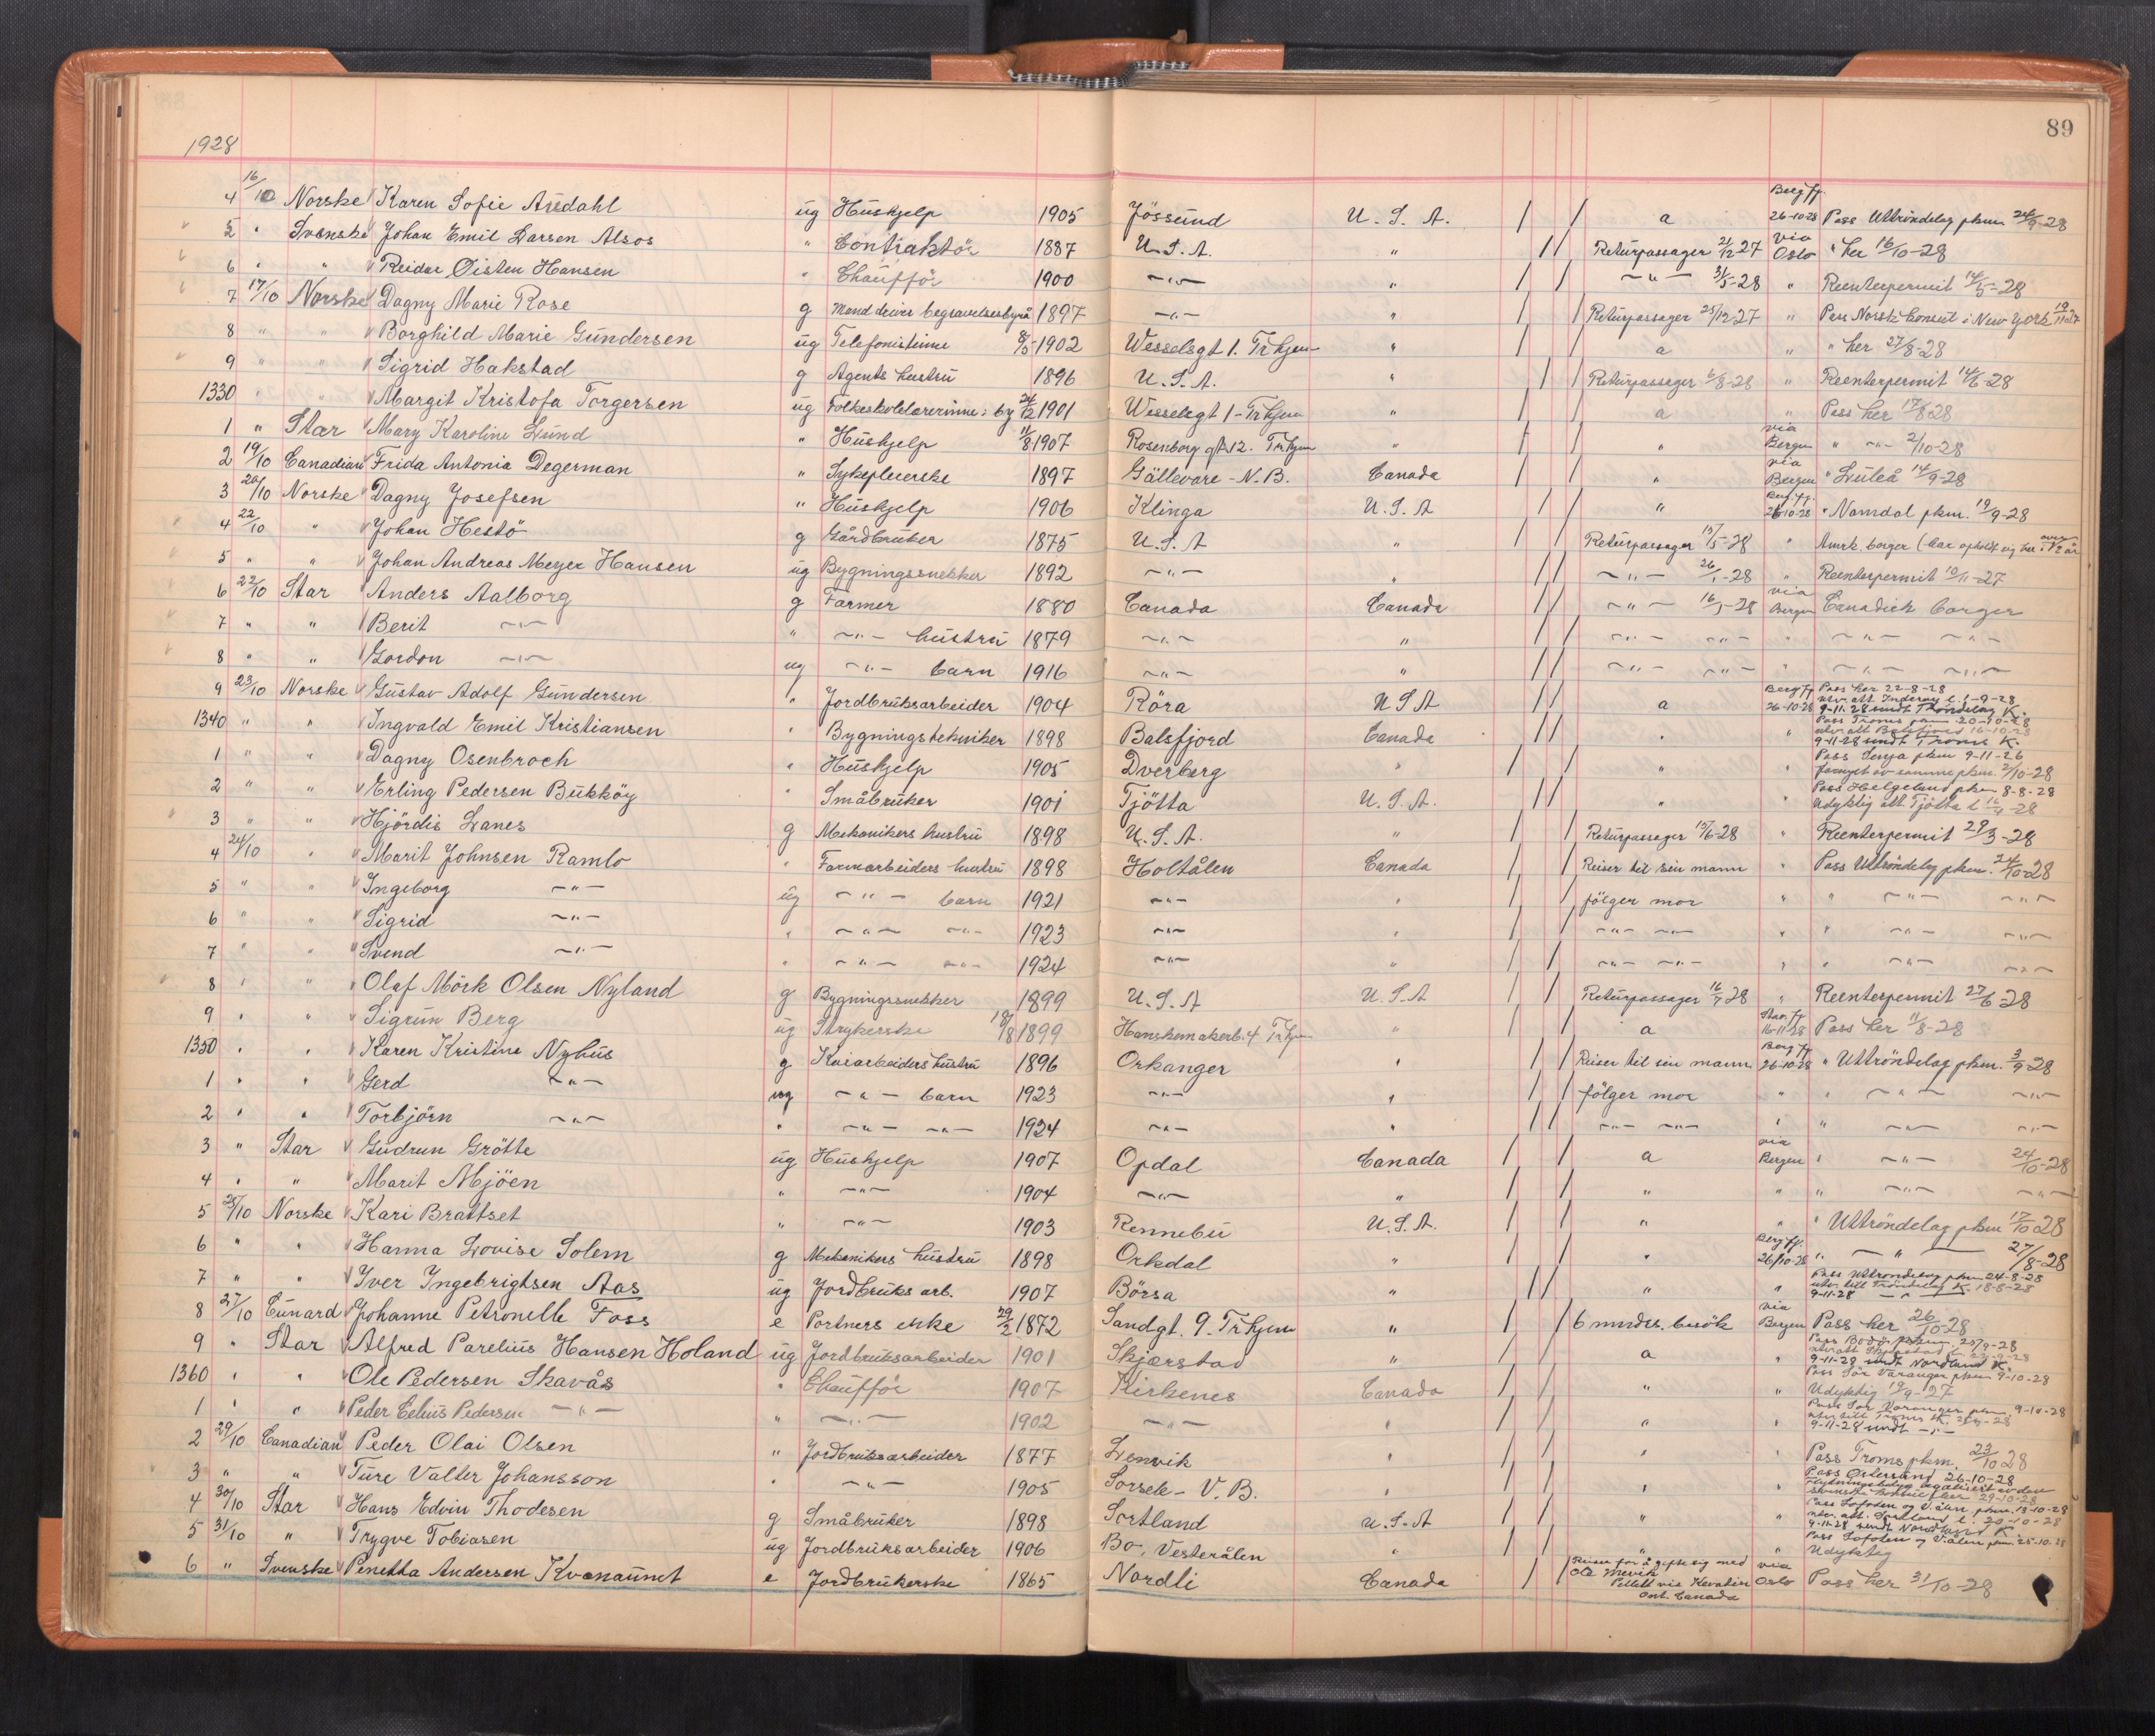 89
1928
4 16/10 Norske Karen Sofie Aüdahl ug Hüshjelp 1905 Jössund U.S.A. / / a Berg.ff. 26-10-28 Pass Uttröndelag pkm 24/9-28
5 " Svenske Johan Emil Larsen Alsos " Contraktör 1887 U.S.A. " / / Returpassager 21/12 27 via Oslo " her 16/10-28
6 " " Reidar Öisten Hansen " Chaufför 1900 -"- " / / -"- 31/5-28 " Reenterpermit 14/5-28
7 17/10 Norske Dagny Marie Rose g Mand driver begravelsesbyrå 1897 -"- " / / Returpassager 23/12 27 " Pass Norsk Consul i New York 19/11-27
8 " " Borghild Marie Gundersen ug Telefonistinne 8/5 1902 Wesselsgt 1. Trhjem " / / a " " her 27/8-28
9 " " Sigrid Hakstad g Agents hustru 1896 U.S.A. " / / Returpassager 6/8-28 " Reenterpermit 14/6-28
1330 " " Margit Kristofa Torgersen ug Folkeskolelærerinne i by 24/12 1901 Wesselsgt 1-Trhjem " / / a " Pass her 17/8 28
1 " Star Mary Karoline Lund " Hüshjelp 11/8 1907 Rosenborg gt. 12. Trhjem " / / " via Bergen " -"- 2/10-28
2 19/10 Canadian Frida Antonia Degerman " Sykepleierske 1897 Gällevare - N.B. Canada / / " via Bergen " Luleå 14/9-28
3 20/10 Norske Dagny Josefsen " Hüshjelp 1906 Klinga U.S.A / / " Berg.ff. 26-10-28 " Namdal pkm. 19/9-28
4 22/10 " Johan Hestö g Gårdbruker 1875 U.S.A " / / Returpassager 15/5-28 " Amrk. borger (har opholdt sig her i over 1/2 år
5 " " Johan Andreas Meyer Hansen ug Bygningssnekker 1892 -"- " / / -"- 26/1-28 " Reenterpermit 10/11-27
6 22/10 Star Anders Aalborg g Farmer 1880 Canada Canada / / -"- 16/5-28 via Bergen Canadisk borger
7 " " Berit -"- " -"- hustru 1879 -"- " / / -"- -"- " -"- -"-
8 " " Gordon -"- ug -"- barn 1916 -"- " / / -"- -"- " -"- -"-
9 23/10 Norske Gustav Adolf Gundersen " Jordbruksarbeider 1904 Röra U S A / / a Berg ff 26-10-28 Pass her 22-8-28
utv. att Inderöy l. 1-9-28
9-11-28 sendt Tröndelag K.
1340 " " Ingvald Emil Kristiansen " Bygningstekniker 1898 Balsfjord Canada / / " " Pass Troms pkm 20-10-28
utv. att Balsfjord 16-10-28
9-11-28 sendt Troms K.
1 " " Dagny Osenbroch " Hüshjelp 1905 Dverberg " / / " " Pass Senja pkm 9-11-26
fornyet av samme pkm. 2/10-28
2 " " Erling Pedersen Bukköy " Småbruker 1901 Tjötta U.S.A. / / " " Pass Helgeland pkm 8-8-28
Udyktig att Tjötta l 16/4-28
3 " " Hjördis Lanes g Mekanikers hustru 1898 U.S.A. " / / Returpassager 15/6-28 " Reenterpermit 29/3-28
4 24/10 " Marit Johnsen Ramlo " Farmarbeiders hustru 1898 Holtålen Canada / / Reiser til sin mann " Pass Uttröndelag pkm. 24/10-28
5 " " Ingeborg -"- ug -"- barn 1921 -"- " / / fölger mor " " -"- -"-
6 " " Sigrid -"- " -"- -"- 1923 -"- " / / -"- -"- " " -"- -"-
7 " " Svend -"- " -"- -"- 1924 -"- " / / -"- -"- " " -"- -"-
8 " " Olaf Mörk Olsen Nyland g Bygningssnekker 1899 U.S.A U.S.A / / Returpassager 16/7 28 " Reenterpermit 27/6-28
9 " " Sigrun Berg ug Strykerske 18/8 1899 Hanskemakerb. 4 Trhjem " / / a Stav. ff. 16-11-28 Pass her 11/8-28
1350 " " Karen Kristine Nyhus g Kaiarbeiders hustru 1896 Orkanger " / / Reiser til sin mann Berg ff 26-10-28 " Uttröndelag pkm. 3/9-28
1 " " Gerd -"- ug -"- barn 1923 -"- " / / fölger mor " " -"- -"-
2 " " Torbjörn -"- " -"- -"- 1924 -"- " / / -"- -"- " " -"- -"-
3 " Star Gudrun Grötte ug Hüshjelp 1907 Opdal Canada / / a via Bergen " -"- 24/10-28
4 " " Marit Mjöen " -"- 1904 -"- " / / " " " -"- -"-
5 25/10 Norske Kari Brattset " -"- 1903 Rennebu U.S.A. / / " " " Uttröndelag pkm 17/10 28
6 " " Hanna Lovise Solem g Mekanikers hustru 1898 Orkdal " / / " Berg.ff. 26/10-28 " -"- 27/8-28
7 " " Iver Ingebrigtsen Aas ug Jordbruks arb. 1907 Börsa " / / " " Pass Uttröndelag pkm 24-8-28
utv. till Tröndelag K. 18-8-28
9-11-28 -"-
8 27/10 Cunard Johanne Petronelle Foss e Portners enke 29/2 1872 Sandgt. 9. Trhjem " / / 6 mndrs. besök via Bergen Pass her 26/10-28
9 " Star Alfred Parelius Hansen Holand ug Jordbruksarbeider 1901 Skjærstad " / / a " Pass Bodö pkm 25/9-28
utv. att Skjerstad l. 29-9-28
9-11-28 sendt Nordland K.
1360 " " Ole Pedersen Skavås " Chaufför 1907 Kirkenes Canada / / " " Pass Sör Varanger pkm 9-10-28
Udyktig 19/9-27
1 " " Peder Celius Pedersen -"- " -"- 1902 -"- " / / " " Pass Sör Varanger pkm. 9-10-28
9-11-28 sendt -"-
2 29/10 Canadian Peder Olai Olsen " Jordbruksarbeider 1877 Lenvik " / / " " Pass Troms pkm. 23/10 28
3 " " Ture Valter Johansson " -"- 1905 Sorsele - V.B. " / / " " Pass Östersund 26-10-28
4 30/10 Star Hans Edvin Thodesen g Småbruker 1898 Sortland U.S.A / / " " Pass Lofoten og V.ålen pkm. 13-10-28
utv. att. Sortland l. 20-10-28
9-11-28 sendt Nordland K.
5 31/10 " Trygve Tobiasen ug Jordbruksarbeider 1906 Bö, Vesterålen " / / " " Pass Lofoten og V.ålen pkm. 25-10-28
Udyktig
6 " Svenske Penetta Andersen Kvænaunet e Jordbrukerske 1865 Nordli Canada / / Reiser for å gifte sig med Ole
Pellett via Kevatin
Ont. Canada via Oslo Pass her 31/10-28